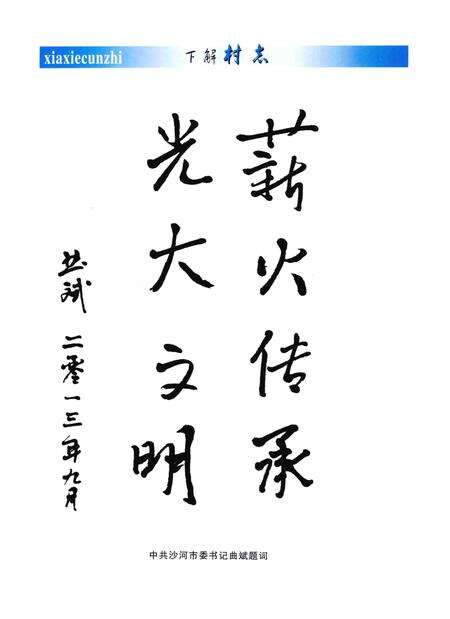 xiaxiecunzhi
下解村志
薪火传承
光大文明
曲斌 二零一三年九月
中共沙河市委书记曲斌题词